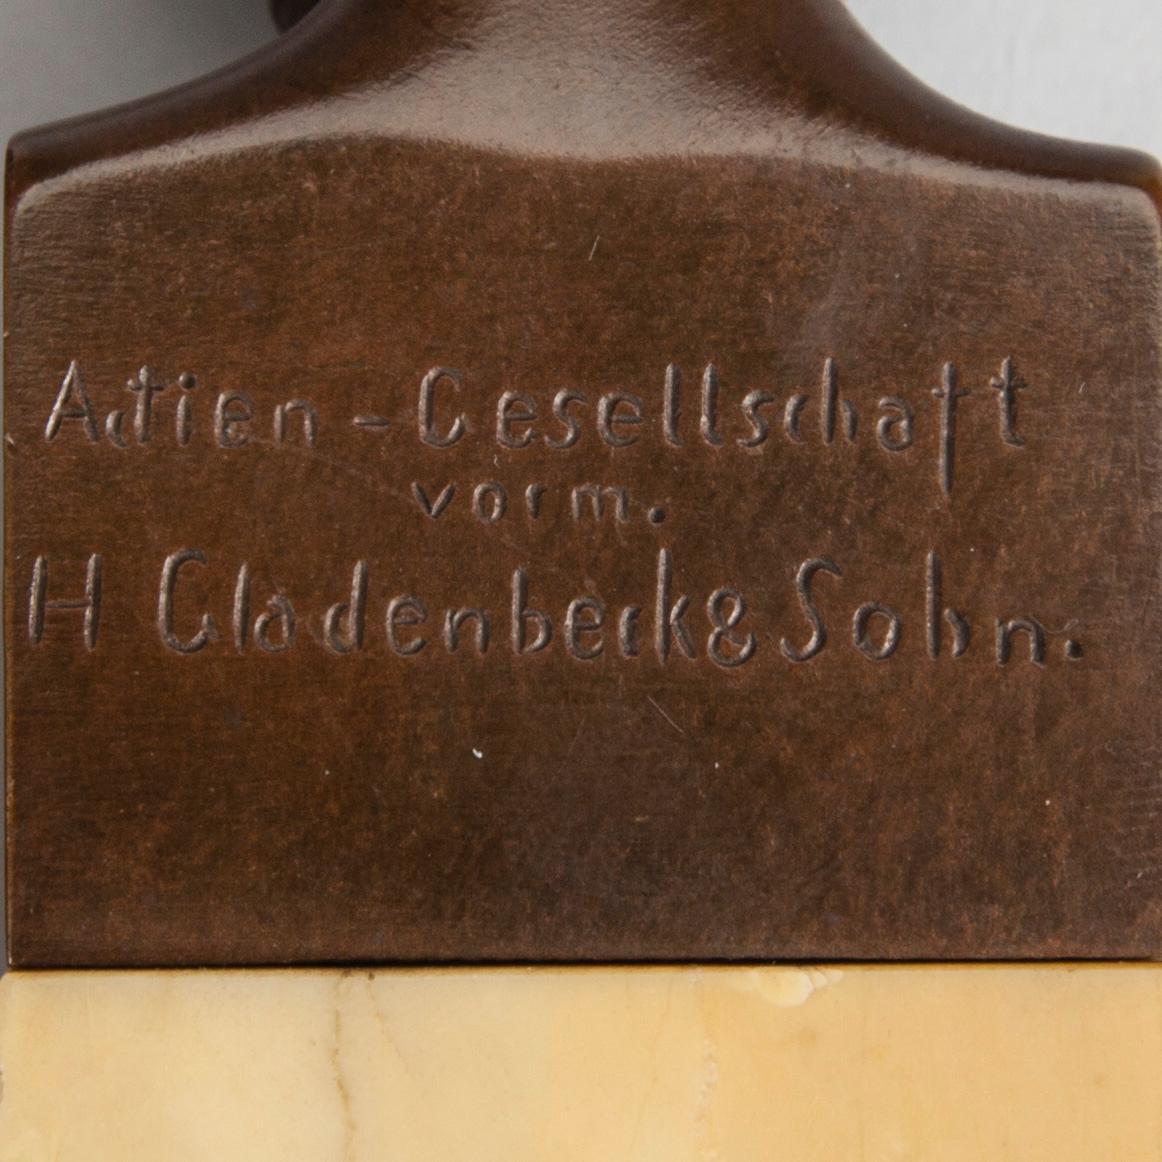 Actien-Gesellschaft
vorm.
H Gladenbeck & Sohn.